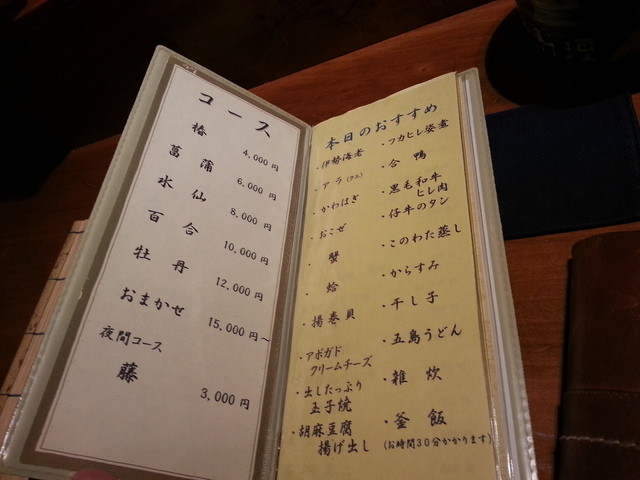 コース
椿
4,000円
菖蒲
6,000円
水仙
8,000円
百合
10,000円
牡丹
12,000円
おまかせ
15,000円～
夜間コース
藤
3,000円
本日のおすすめ
・伊勢海老
・アラ(クエ)
・かわはぎ
・おこぜ
・蟹
・蛤
・揚巻貝
・アボガド
クリームチーズ
・出したっぷり
玉子焼
・胡麻豆腐
揚げ出し
・フカヒレ姿煮
・合鴨
・黒毛和牛
ヒレ肉
・仔牛のタン
・このわた蒸し
・からすみ
・干し子
・五島うどん
・雑炊
・釜飯
(お時間30分かかります)